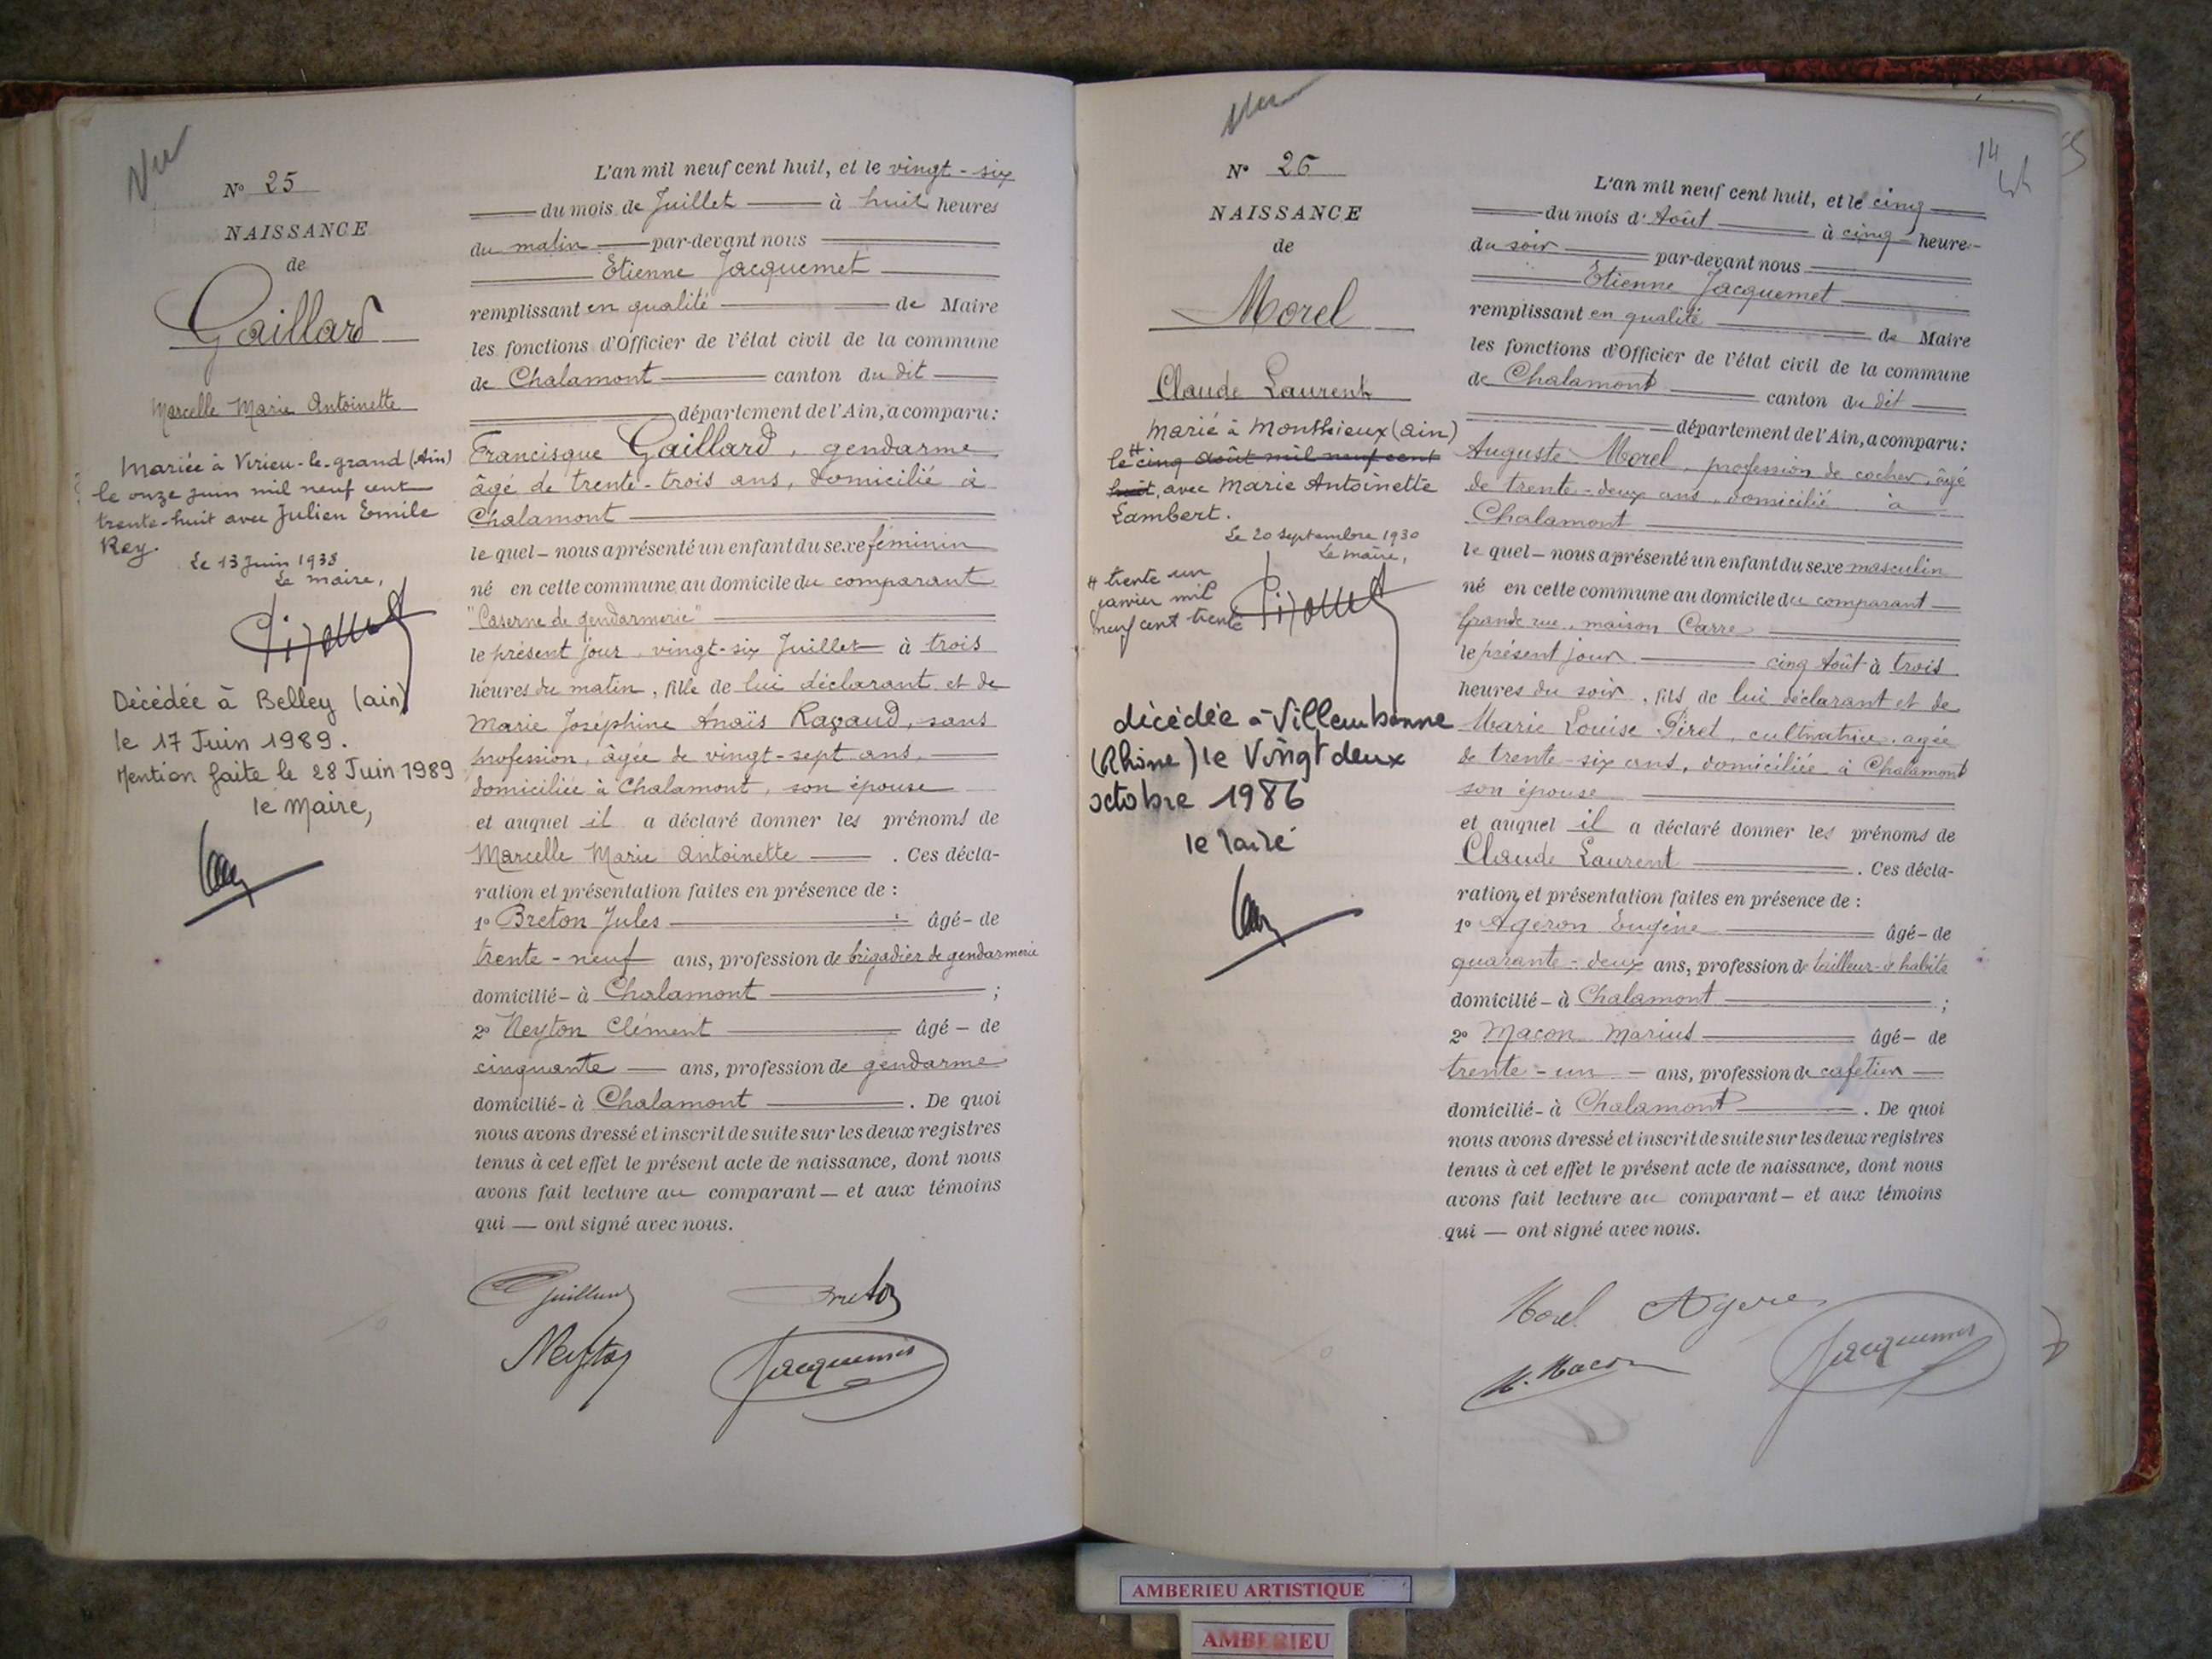 Vu
Nº 25
NAISSANCE
de
Gaillard
Marcelle Marie Antoinette
Mariée à Virieu-le-grand (Ain)
le onze juin mil neuf cent
trente-huit avec Julien Emile
Rey.
Le 13 Juin 1938
Le maire,
Décédée à Belley (ain)
le 17 Juin 1989.
Mention faite le 28 Juin 1989
le Maire,
L'an mil neuf cent huit, et le vingt-six
du mois de Juillet à huit heures
du matin par-devant nous
Etienne Jacquemet
remplissant en qualité de Maire
les fonctions d'Officier de l'état civil de la commune
de Chalamont canton du dit
département de l'Ain, a comparu:
Francisque Gaillard, gendarme,
âgé de trente-trois ans, domicilié à
Chalamont
le quel - nous a présenté un enfant du sexe féminin
né en cette commune, au domicile du comparant
"Caserne de gendarmerie"
le présent jour, vingt-six Juillet à trois
heures du matin, fille de lui déclarant et de
Marie Joséphine Anaïs Ragaud, sans
profession, âgée de vingt-sept ans,
domiciliée à Chalamont, son épouse
et auquel il a déclaré donner les prénoms de
Marcelle Marie Antoinette . Ces décla-
ration et présentation faites en présence de :
1º Breton Jules âgé - de
trente-neuf ans, profession de brigadier de gendarmerie
domicilié - à Chalamont ;
2º Neyton Clément âgé - de
cinquante ans, profession de gendarme
domicilié - à Chalamont . De quoi
nous avons dressé et inscrit de suite sur les deux registres
tenus à cet effet le présent acte de naissance, dont nous
avons fait lecture au comparant - et aux témoins
qui - ont signé avec nous.
Gaillard Breton
Neyton Jacquemet
Vu
14
Nº 26
NAISSANCE
de
Morel
Claude Laurent
Marié à Monthieux (ain)
le cinq août mil neuf cent
huit, avec Marie Antoinette
Lambert.
Le 20 septembre 1930
Le maire,
# trente un
janvier mil
neuf cent trente
décédée à Villeurbanne
(Rhône) le Vingt deux
octobre 1986
le Maire
L'an mil neuf cent huit, et le cinq
du mois d'Août à cinq heure-
du soir par-devant nous
Etienne Jacquemet
remplissant en qualité de Maire
les fonctions d'Officier de l'état civil de la commune
de Chalamont canton du dit
département de l'Ain, a comparu:
Auguste Morel, profession de cocher, âgé
de trente-deux ans, domicilié à
Chalamont
le quel - nous a présenté un enfant du sexe masculin
né en cette commune au domicile du comparant
Grande rue, maison Carre
le présent jour cinq Août à trois
heures du soir, fils de lui déclarant et de
Marie Louise Piret, cultivatrice, agée
de trente-six ans, domiciliée à Chalamont
son épouse
et auquel il a déclaré donner les prénoms de
Claude Laurent . Ces décla-
ration et présentation faites en présence de :
1º Ageron Eugène âgé - de
quarante-deux ans, profession de tailleur-d'habits
domicilié - à Chalamont ;
2º Macon Marius âgé - de
trente-un - ans, profession de cafetier
domicilié - à Chalamont . De quoi
nous avons dressé et inscrit de suite sur les deux registres
tenus à cet effet le présent acte de naissance, dont nous
avons fait lecture au comparant - et aux témoins
qui - ont signé avec nous.
Morel Ageron
M. Macon Jacquemet
AMBERIEU ARTISTIQUE
AMBERIEU